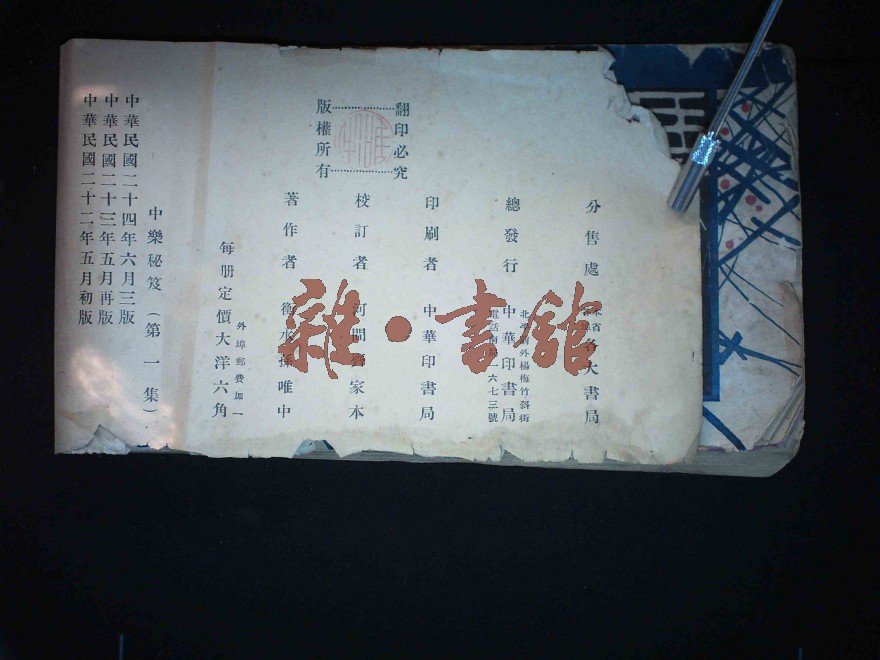 中華民國二十二年五月初版
中華民國二十三年五月再版
中華民國二十四年六月三版
中樂秘笈（第一集）
每册定價大洋六角
外埠郵費加一
著作者 衡水孫唯中
版權所有
校訂者 河間齊家本
翻印必究
印刷者 中華印書局
電話南局一六七三號
總發行 中華印書局
北平前外楊梅竹斜街
分售處 省各大書局
雜·書館